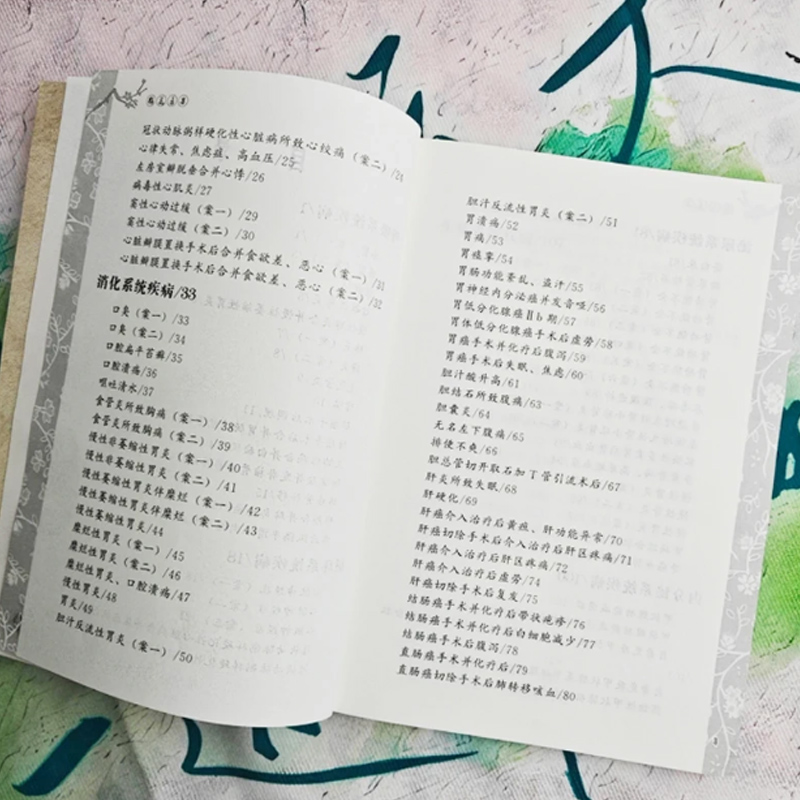 冠状动脉粥样硬化性心脏病所致心绞痛（案二）/24
心律失常、焦虑症、高血压/25
左房室瓣脱垂合并心悸/26
病毒性心肌炎/27
窦性心动过缓（案一）/29
窦性心动过缓（案二）/30
心脏瓣膜置换手术后合并食欲差、恶心（案一）/31
心脏瓣膜置换手术后合并食欲差、恶心（案二）/32
消化系统疾病/33
口炎（案一）/33
口炎（案二）/34
口腔扁平苔藓/35
口腔溃疡/36
呕吐清水/37
食管炎所致胸痛（案一）/38
食管炎所致胸痛（案二）/39
慢性非萎缩性胃炎（案一）/40
慢性非萎缩性胃炎（案二）/41
慢性萎缩性胃炎伴糜烂（案一）/42
慢性萎缩性胃炎伴糜烂（案二）/43
慢性萎缩性胃炎/44
糜烂性胃炎（案一）/45
糜烂性胃炎（案二）/46
糜烂性胃炎、口腔溃疡/47
慢性胃炎/48
胃炎/49
胆汁反流性胃炎（案一）/50
胆汁反流性胃炎（案二）/51
胃溃疡/52
胃痛/53
胃痞挛/54
胃肠功能紊乱、盗汗/55
胃神经内分泌癌并发音哑/56
胃低分化腺癌Ⅱb期/57
胃体低分化腺癌手术后虚劳/58
胃癌手术并化疗后腹泻/59
胃癌手术后失眠、焦虑/60
胆汁酸升高/61
胆结石所致腹痛/63
胆囊炎/64
无名左下腹痛/65
排便不爽/66
胆总管切开取石加T管引流术后/67
肝炎所致失眠/68
肝硬化/69
肝癌介入治疗后黄疸、肝功能异常/70
肝癌切除手术后介入治疗后肝区疼痛/71
肝癌介入治疗后肝区疼痛/72
肝癌介入治疗后虚劳/74
肝癌切除手术后复发/75
结肠癌手术并化疗后带状疱疹/76
结肠癌手术并化疗后白细胞减少/77
结肠癌手术后腹泻/78
直肠癌手术并化疗后/79
直肠癌切除手术后肺转移咳血/80